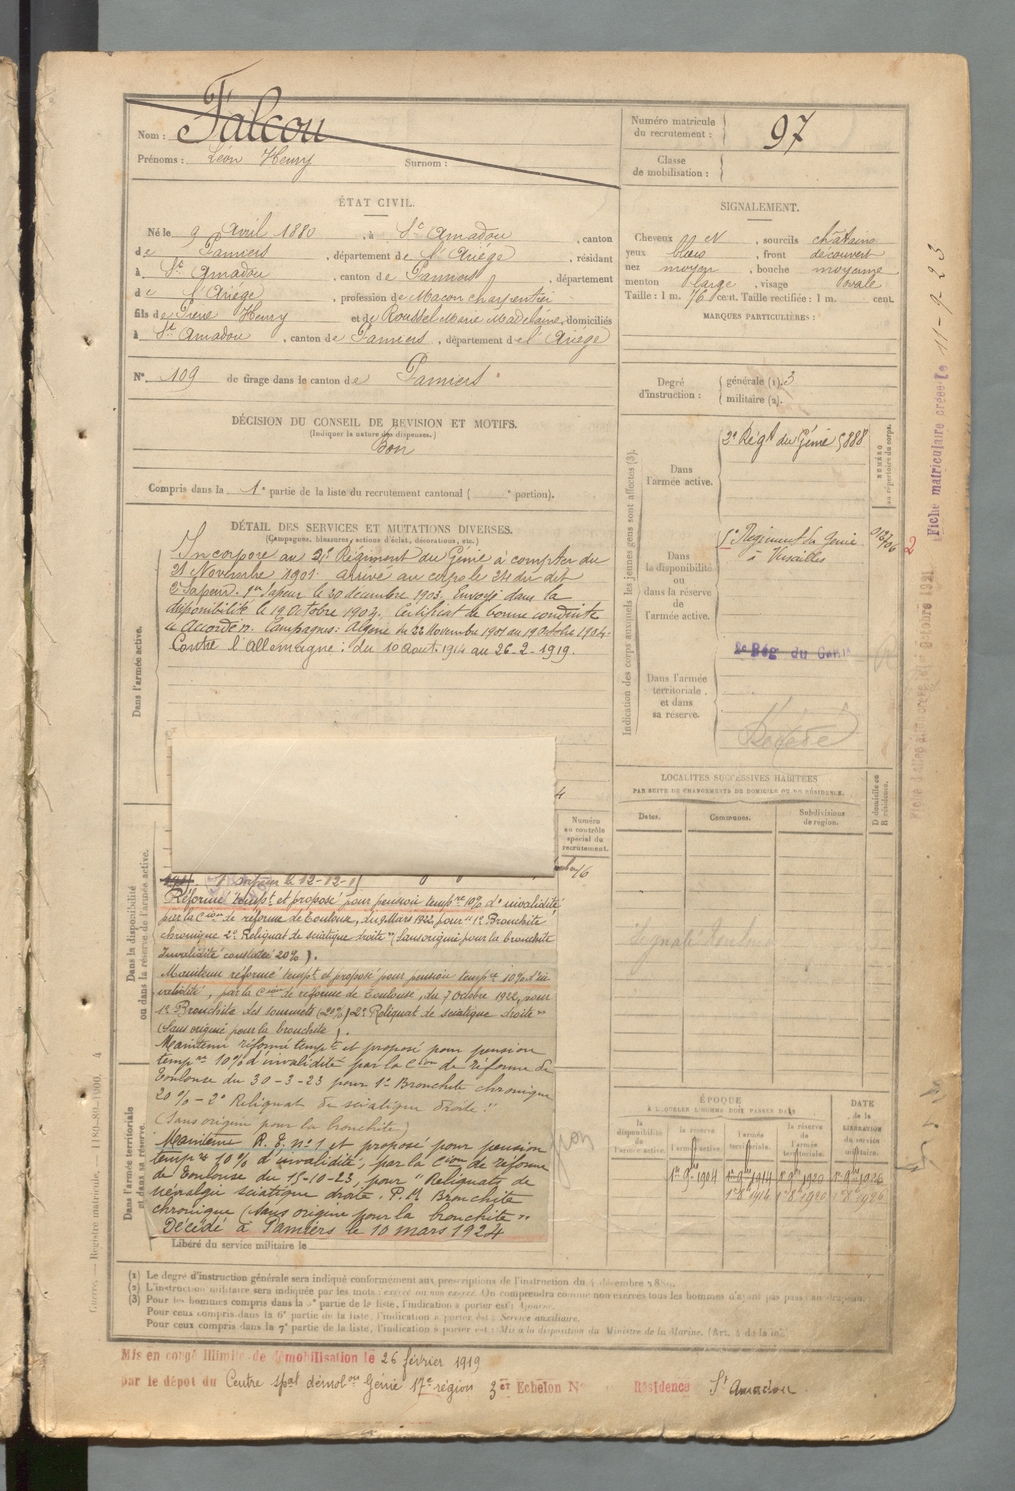 Nom : Falcou
Prénoms : Léon Henry Surnom :
Numéro matricule
du recrutement :
97
Classe
de mobilisation :
ÉTAT CIVIL.
Né le 9 Avril 1880, à St Amadou, canton
de Pamiers, département de l'Ariège, résidant
à St Amadou, canton de Pamiers, département
de l'Ariége, profession de Macon charpentier
fils de Henry et de Roussel Marie Madelaine, domiciliés
à St Amadou, canton de Pamiers, département de l'Ariége
N° 109 de tirage dans le canton de Pamiers
SIGNALEMENT.
Cheveux et, sourcils châtains
yeux bleus, front découvert
nez moyen, bouche moyenne
menton large, visage ovale
Taille : 1 m. 76 cent. Taille rectifiée : 1 m. cent.
MARQUES PARTICULIÈRES :
Degré
d'instruction :
générale (1). 3
militaire (2).
DÉCISION DU CONSEIL DE REVISION ET MOTIFS.
(Indiquer la nature des dispenses.)
Bon
Compris dans la 1e partie de la liste du recrutement cantonal ( e portion).
DÉTAIL DES SERVICES ET MUTATIONS DIVERSES.
(Campagnes, blessures, actions d'éclat, décorations, etc.)
Dans l'armée active.
Incorporé au 2e Régiment du Génie à compter du
21 Novembre 1901. arrivé au corps le 21 du dit
2e Sapeur. 1er Sapeur le 30 decembre 1903. Envoyé dans la
disponibilité le 19 Octobre 1904. Certificat de bonne conduite
Accordé. Campagnes : Algérie du 22 Novembre 1901 au 19 Octobre 1904.
Contre l'Allemagne : du 10 Aout 1914 au 26-2-1919.
Indication des corps auxquels les jeunes gens sont affectés (3).
Dans
l'armée active.
2e Régt du Génie 5888
NUMÉRO
au répertoire du corps.
Dans
la disponibilité
ou
dans la réserve
de
l'armée active.
1er Régiment du Génie
à Versailles
Dans l'armée
territoriale
et dans
sa réserve.
2e Rég du Génie
Décédé
Fiche matriculaire créée le 11-9-23
2
LOCALITÉS SUCCESSIVES HABITÉES
PAR SUITE DE CHANGEMENTS DE DOMICILE OU DE RÉSIDENCE.
Dates.
Communes.
Subdivisions
de région.
D domicile ou
R résidence.
Numéro
au contrôle
spécial du
recrutement.
Dans la disponibilité
ou dans la réserve de l'armée active.
Réformé tempt et proposé pour pension tempre 10% d'invalidité
par la Cion de réforme de Toulouse, du 9 Mars 1922, pour "1° Bronchite
chronique 2° Reliquat de sciatique droite" (Sans origine pour la bronchite
Invalidité constatée 20%).
Maintenu réformé tempt et proposé pour pension tempre 10% d'in
validité, par la Cion de réforme de Toulouse, du 7 Octobre 1922, pour
1° Bronchite des sommets (20%) 2° Reliquat de sciatique droite"
(Sans origine pour la bronchite).
Maintenu réformé tempt et proposé pour pension
tempre 10% d'invalidité par la Cion de réforme de
Toulouse du 30-3-23 pour 1° Bronchite chronique
20% - 2° Reliquat de sciatique droite"
(Sans origine pour la bronchite)
Dans l'armée territoriale
et dans sa réserve.
Maintenu R. T. n° 1 et proposé pour pension
tempre 10% d'invalidité, par la Cion de réforme
de Toulouse du 15-10-23, pour "Reliquats de
névralgie sciatique droite. P.M. Bronchite
chronique (sans origine pour la bronchite"
Décédé à Pamiers le 10 mars 1924
Libéré du service militaire le
ÉPOQUE
À LAQUELLE L'HOMME DOIT PASSER DANS
la
disponibilité
de
l'armée active.
la réserve
de
l'armée active.
l'armée
territoriale.
la réserve
de
l'armée
territoriale.
DATE
de la
LIBÉRATION
du service
militaire.
1er 9bre 1904 1er 9bre 1914 1er 9bre 1920 1er 9bre 1926
1er 8bre 1914 1er 8bre 1920 1er 8bre 1926
(1) Le degré d'instruction générale sera indiqué conformément aux prescriptions de l'instruction du 4 décembre 1889.
(2) L'instruction militaire sera indiquée par les mots : exercé ou non exercé. On comprendra comme non exercés tous les hommes n'ayant pas passé au drapeau.
(3) Pour les hommes compris dans la 5e partie de la liste, l'indication à porter est : Ajourné.
Pour ceux compris dans la 6e partie de la liste, l'indication à porter est : Service auxiliaire.
Pour ceux compris dans la 7e partie de la liste, l'indication à porter est : Mis à la disposition du Ministre de la Marine. (Art. 4 de la loi.)
Mis en congé illimité de démobilisation le 26 février 1919
par le dépôt du Centre spal démobon Génie 17e région 3er Echelon N° Résidence St Amadou